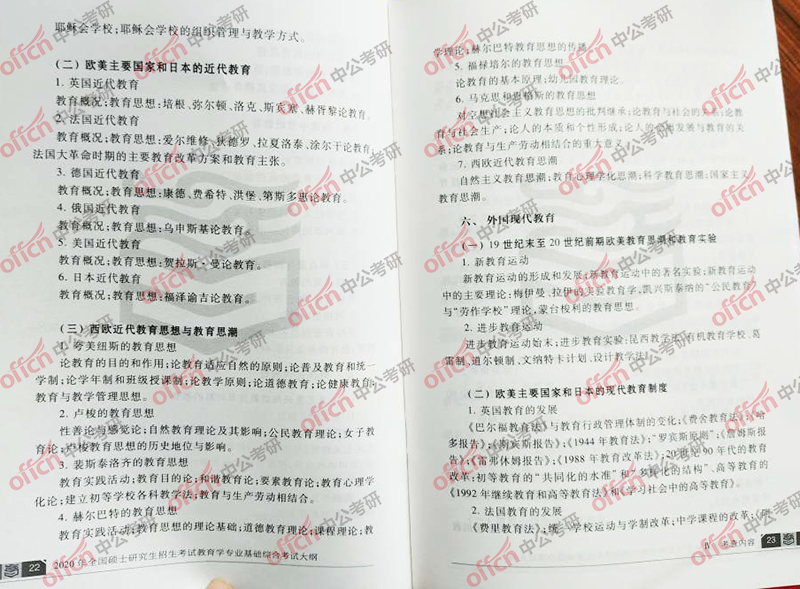 耶稣会学校;耶稣会学校的组织管理与教学方式。
(二) 欧美主要国家和日本的近代教育
1. 英国近代教育
教育概况;教育思想:培根、弥尔顿、洛克、斯宾塞、赫胥黎论教育。
2. 法国近代教育
教育概况;教育思想:爱尔维修、狄德罗、拉夏洛泰、涂尔干论教育;
法国大革命时期的主要教育改革方案和教育主张。
3. 德国近代教育
教育概况;教育思想:康德、费希特、洪堡、第斯多惠论教育。
4. 俄国近代教育
教育概况;教育思想:乌申斯基论教育。
5. 美国近代教育
教育概况;教育思想:贺拉斯·曼论教育。
6. 日本近代教育
教育概况;教育思想:福泽谕吉论教育。
(三) 西欧近代教育思想与教育思潮
1. 夸美纽斯的教育思想
论教育的目的和作用;论教育适应自然的原则;论普及教育和统一
学制;论学年制和班级授课制;论教学原则;论道德教育;论健康教育;
教育与教学管理思想。
2. 卢梭的教育思想
性善论与感觉论;自然教育理论及其影响;公民教育理论;女子教
育论;卢梭教育思想的历史地位与影响。
3. 裴斯泰洛齐的教育思想
教育实践活动;教育目的论;和谐教育论;要素教育论;教育心理学
化论;建立初等学校各科教学法;教育与生产劳动相结合。
4. 赫尔巴特的教育思想
教育实践活动;教育思想的理论基础;道德教育理论;课程理论;教
22 2020 年全国硕士研究生招生考试教育学专业基础综合考试大纲
学理论;赫尔巴特教育思想的传播
5. 福禄培尔的教育思想
论教育的基本原理;幼儿园教育理论。
6. 马克思和恩格斯的教育思想
对空想社会主义教育思想的批判继承;论教育与社会的关系;论教
育与社会生产;论人的本质和个性形成;论人的全面发展与教育的关
系;论教育与生产劳动相结合的重大意义。
7. 西欧近代教育思潮
自然主义教育思潮;教育心理学化思潮;科学教育思潮;国家主义
教育思潮。
六、 外国现代教育
(一) 19 世纪末至 20 世纪前期欧美教育思潮和教育实验
1. 新教育运动
新教育运动的形成和发展;新教育运动中的著名实验;新教育运动
中的主要理论;梅伊曼、拉伊的实验教育学,凯兴斯泰纳的“公民教育”
与“劳作学校”理论,蒙台梭利的教育思想。
2. 进步教育运动
进步教育运动始末;进步教育实验:昆西教学法、有机教育学校、葛
雷制、道尔顿制、文纳特卡计划、设计教学法。
(二) 欧美主要国家和日本的现代教育制度
1. 英国教育的发展
《巴尔福教育法》与教育行政管理体制的变化;《费舍教育法》;《哈
多报告》;《斯宾斯报告》;《1944 年教育法》;“罗宾斯原则”;《詹姆斯报
告》;《雷弗休姆报告》;《1988 年教育改革法》;20 世纪 90 年代的教育
改革:初等教育的“共同化的水准”和“多样化的结构”、高等教育的
《1992 年继续教育和高等教育法》和《学习社会中的高等教育》。
2. 法国教育的发展
《费里教育法》;统一学校运动与学制改革;中学课程的改革;《郎
Ⅳ 考查内容 23
offcn 中公考研